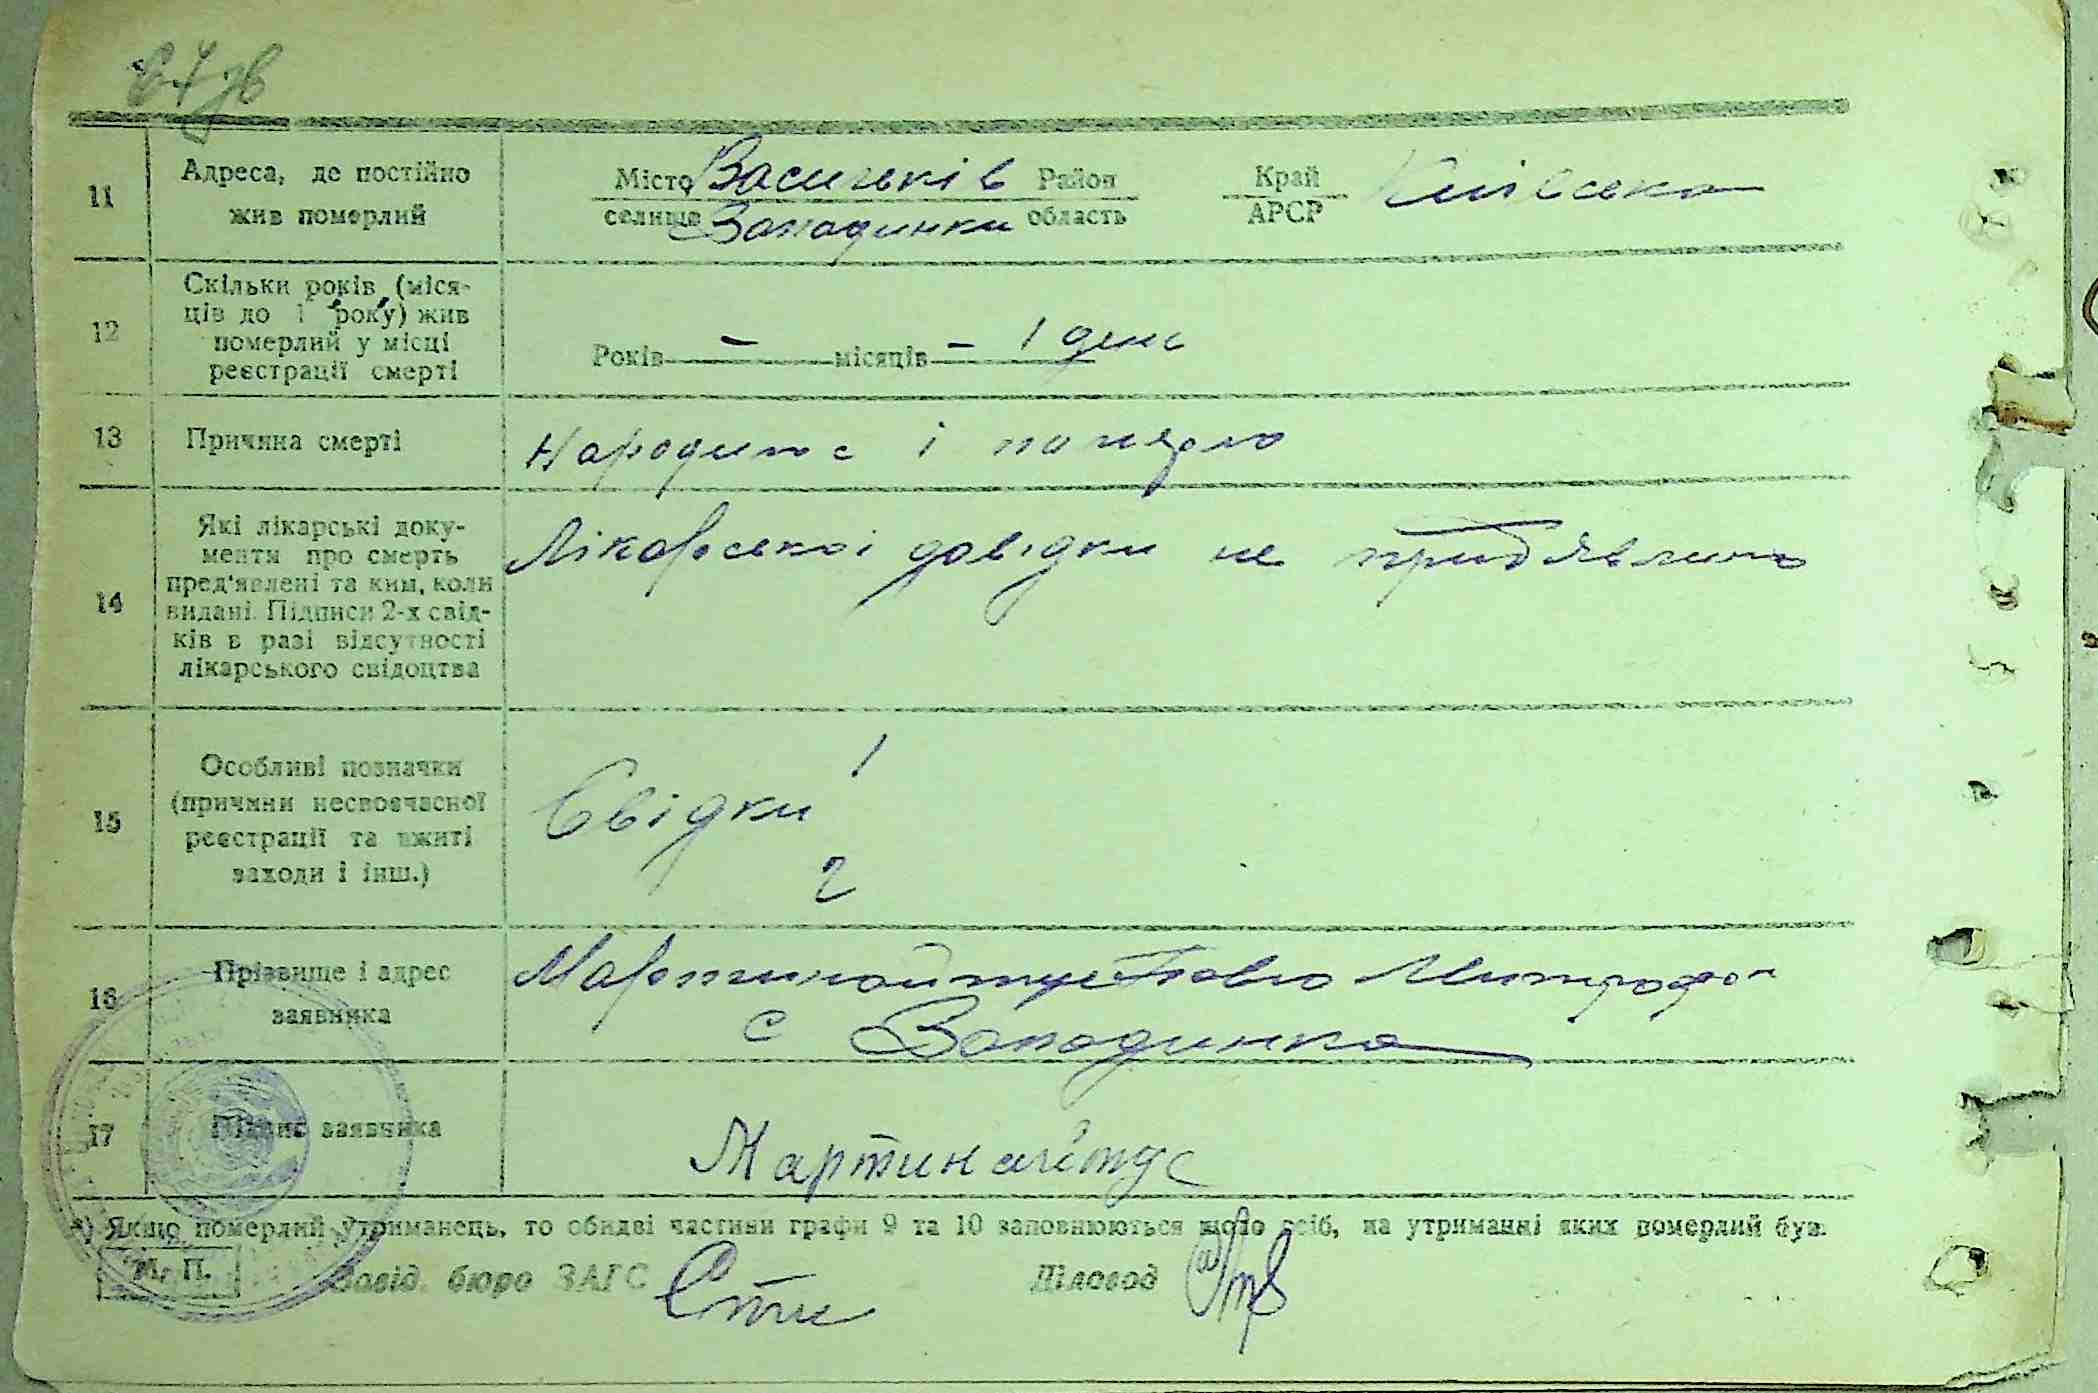 67зв
11
Адреса, де постійно
жив померлий
Місто Васильків Район
Край Київська
селище Западинки область
АРСР
12
Скільки років (міся-
ців до 1 року) жив
померлий у місці
реєстрації смерті
Років — місяців — 1 день
13
Причина смерті
Народилось і
14
Які лікарські доку-
менти про смерть
пред'явлені та ким, коли
видані. Підписи 2-х свід-
ків в разі відсутності
лікарського свідоцтва
Лікарської довідки не
15
Особливі позначки
(причини несвоєчасної
реєстрації та вжиті
заходи і інш.)
Свідки 1
2
16
Прізвище і адрес
заявника
Мартинайтус Павло Митрофан
с Западинка
17
Підпис заявника
Мартинайтус
*) Якщо померлий утриманець, то обидві частини графи 9 та 10 заповнюються щодо осіб, на утриманні яких померлий був.
М. П.
Завід. бюро ЗАГС
Діловод